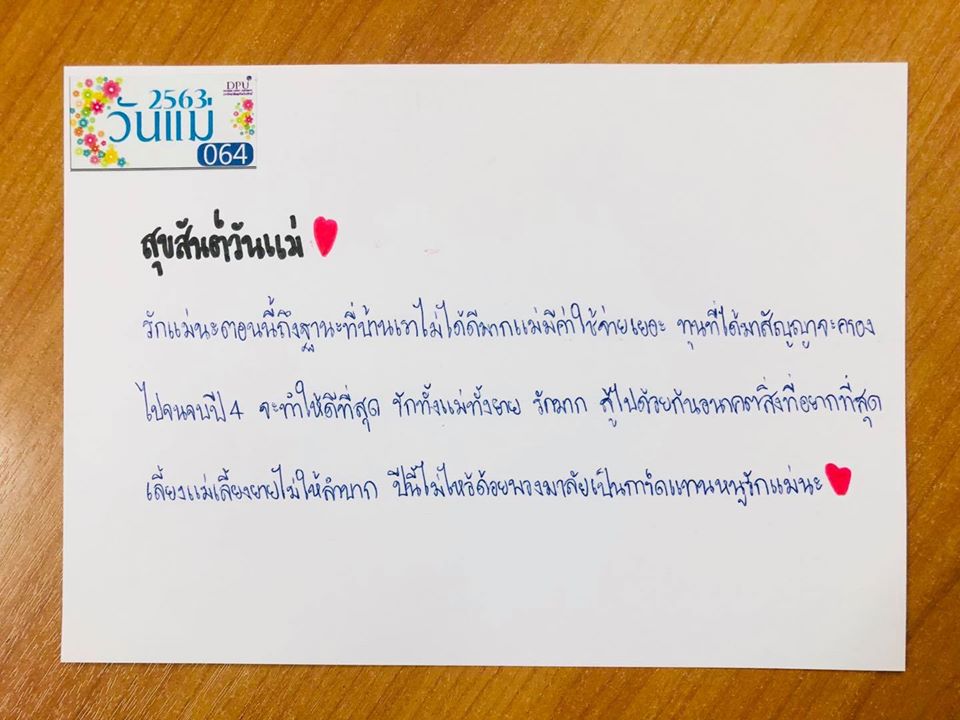 DPU
2563
วันแม่
064
สุขสันต์วันแม่
รักแม่นะตอนนี้ถึงฐานะที่บ้านเราไม่ได้ดีมากแม่มีค่าใช้จ่ายเยอะ ทุนที่ได้มาสัญญาจะครอง
ไปจนจบปี 4 จะทำให้ดีที่สุด รักทั้งแม่ทั้งยาย รักมาก สู้ไปด้วยกันอนาคตสิ่งที่อยากที่สุด
เลี้ยงแม่เลี้ยงยายไม่ให้ลำบาก ปีนี้ไม่ไหว้ด้วยพวงมาลัยเป็นการ์ดแทนหนูรักแม่นะ